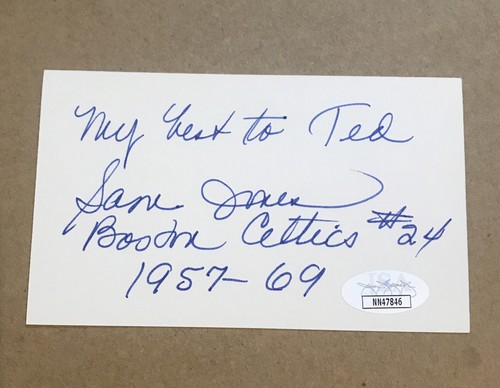 My best to Ted
Sam Jones
Boston Celtics #24
1957-69
JSA
NN47846